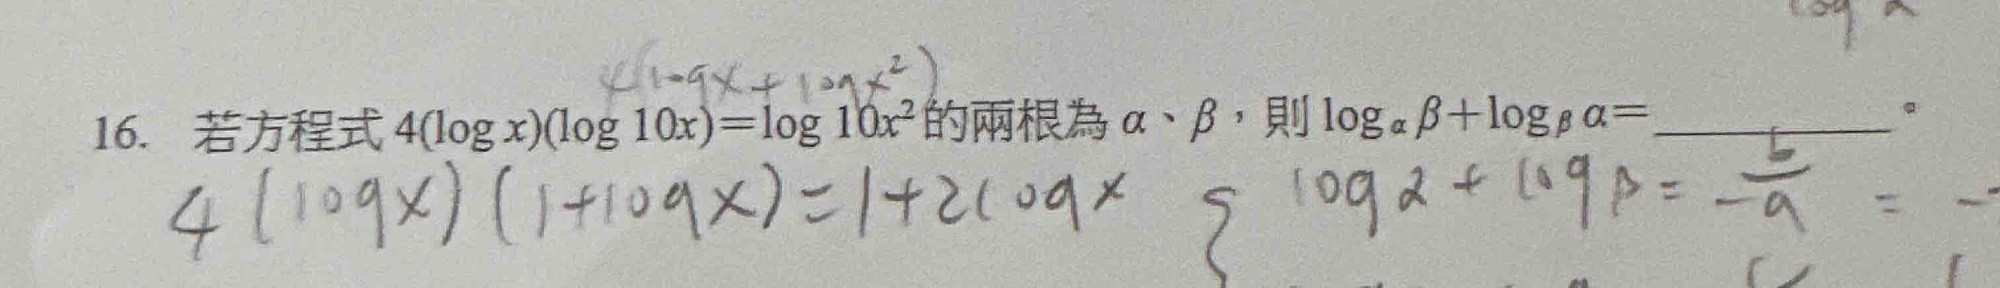 log α
4(logx + logx²)
16. 若方程式 4(log x)(log 10x)=log 10x² 的兩根為 α、β,則 log_α β+log_β α=________。
4(logx)(1+logx)=1+2logx { logα + logβ = -b/a = -